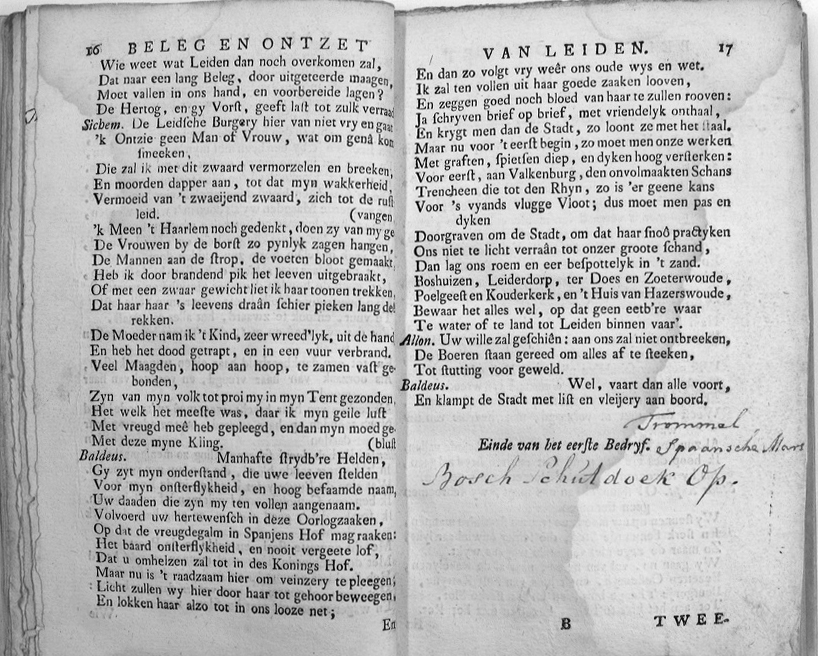 16 BELEG EN ONTZET
Wie weet wat Leiden dan noch overkomen zal,
Dat naar een lang Beleg, door uitgeteerde maagen,
Moet vallen in ons hand, en voorbereide lagen?
De Hertog, en gy Vorst, geeft last tot zulk verraad
Sichem. De Leidsche Burgery hier van niet vry en gaat
'k Ontzie geen Man of Vrouw, wat om genâ kon
smeeken,
Die zal ik met dit zwaard vermorzelen en breeken,
En moorden dapper aan, tot dat myn wakkerheid,
Vermoeid van 't zwaeijend zwaard, zich tot de rust
leid. (vangen,
'k Meen 't Haarlem noch gedenkt, doen zy van my ge
De Vrouwen by de borst zo pynlyk zagen hangen,
De Mannen aan de strop, de voeten bloot gemaakt,
Heb ik door brandend pik het leeven uitgebraakt,
Of met een zwaar gewicht liet ik haar toonen trekken,
Dat haar haar 's leevens draân schier pieken lang de
rekken.
De Moeder nam ik 't Kind, zeer wreed'lyk, uit de hand
En heb het dood getrapt, en in een vuur verbrand.
Veel Maagden, hoop aan hoop, te zamen vast ge-
bonden,
Zyn van myn volk tot proi my in myn Tent gezonden,
Het welk het meeste was, daar ik myn geile lust
Met vreugd meê heb gepleegd, en dan myn moed ge-
Met deze myne Kling. (blust
Baldeus. Manhafte strydb're Helden,
Gy zyt myn onderstand, die uwe leeven stelden
Voor myn onsterflykheid, en hoog befaamde naam,
Uw daaden die zyn my ten vollen aangenaam.
Volvoerd uw hertewensch in deze Oorlogzaaken,
Op dat de vreugdegalm in Spanjens Hof mag raaken:
Het baard onsterflykheid, en nooit vergeete lof,
Dat u omhelzen zal tot in des Konings Hof.
Maar nu is 't raadzaam hier om veinzery te pleegen;
Licht zullen wy hier door haar tot gehoor beweegen,
En lokken haar alzo tot in ons looze net;
En
VAN LEIDEN. 17
En dan zo volgt vry weêr ons oude wys en wet.
Ik zal ten vollen uit haar goede zaaken looven,
En zeggen goed noch bloed van haar te zullen rooven:
Ja schryven brief op brief, met vriendelyk onthaal,
En krygt men dan de Stadt, zo loont ze met het staal.
Maar nu voor 't eerst begin, zo moet men onze werken
Met graften, spietsen diep, en dyken hoog versterken:
Voor eerst, aan Valkenburg, den onvolmaakten Schans
Trencheen die tot den Rhyn, zo is 'er geene kans
Voor 's vyands vlugge Vloot; dus moet men pas en
dyken
Doorgraven om de Stadt, om dat haar snoô practyken
Ons niet te licht verraân tot onzer groote schand,
Dan lag ons roem en eer bespottelyk in 't zand.
Boshuizen, Leiderdorp, ter Does en Zoeterwoude,
Poelgeest en Kouderkerk, en 't Huis van Hazerswoude,
Bewaar het alles wel, op dat geen eetb're waar
Te water of te land tot Leiden binnen vaar'.
Allon. Uw wille zal geschiên: aan ons zal niet ontbreeken,
De Boeren staan gereed om alles af te steeken,
Tot stutting voor geweld.
Baldeus. Wel, vaart dan alle voort,
En klampt de Stadt met list en vleijery aan boord.
Trommel,
Einde van het eerste Bedryf. Spaansche Mars
Bosch Schutdoek Op.
B TWEE-